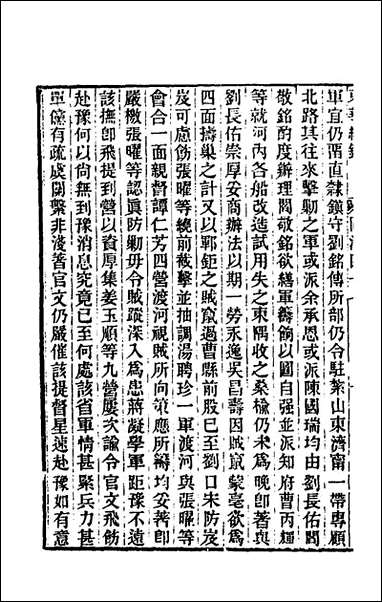 軍宜仍留直隸鎮守劉銘傳所部仍令駐紮山東濟甯一帶專顧
北路其往來擊勦之軍或派余承恩或派陳國瑞均由劉長佑閻
敬銘酌度辦理閻敬銘欲繕軍簿餉以圖自强並派知府曹丙輝
等就河內各船改造試用失之東隅收之桑楡仍未爲晚卽著與
劉長佑崇厚安商辦法以期一勞永逸吳昌壽因賊竄蒙亳欲爲
四面擣巢之計又以鄆鉅之賊竄過曹縣前股已至劉口朱防岌
岌可慮飭張曜等繞前截擊並抽調湯聘珍一軍渡河與張曜等
會合一面親督譚仁芳四營渡河視賊所向策應所籌均妥著卽
嚴檄張曜等認眞防勦毋令賊蹤深入爲患蔣凝學軍距豫不遠
該撫卽飛提到營以資厚集姜玉順等九營屢次諭令官文飛飭
赴豫何以尙無到豫消息究竟已至何處該省軍情甚緊兵力甚
單儻有疏虞關繫非淺著官文仍嚴催該提督星速赴豫如有意